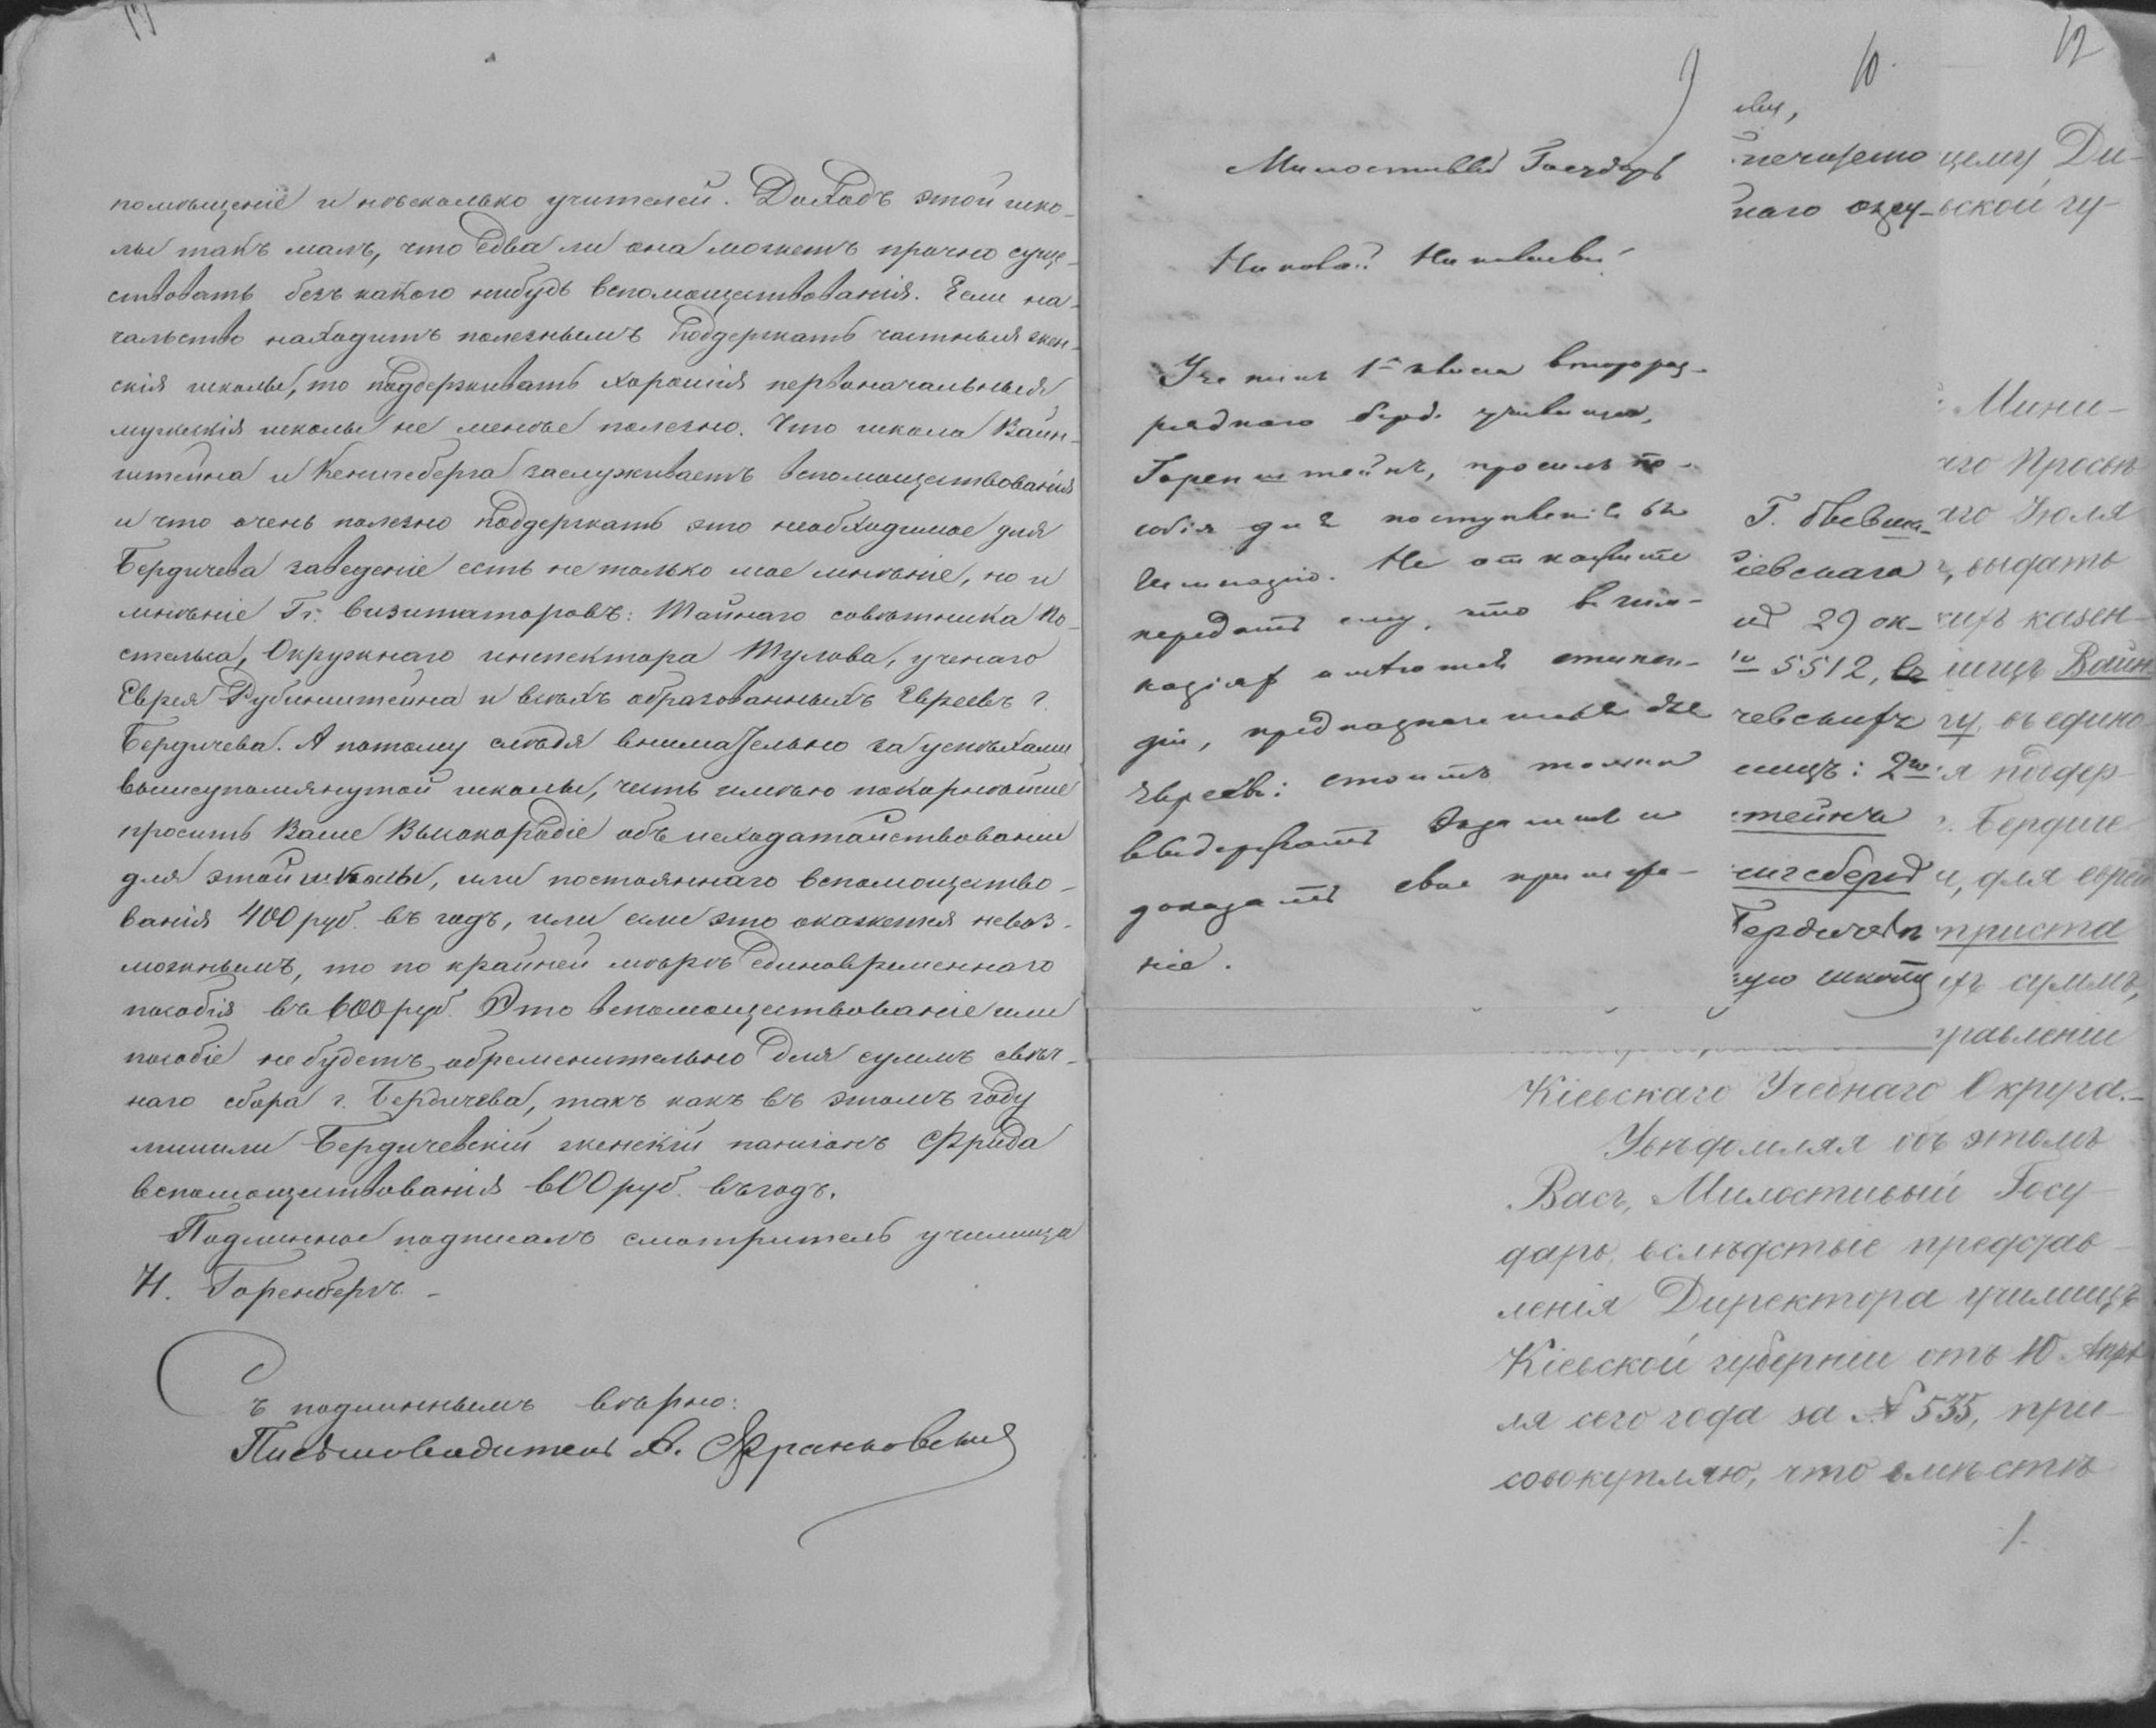 помѣщеніе и нѣсколько учителей. Доходъ этой шко-
лы такъ малъ, что едва ли она можетъ прочно суще-
ствовать безъ какого нибудь вспомоществованія. Если на-
чальство находитъ полезнымъ поддержать частныя жен-
скія школы, то поддерживать хорошія первоначальныя
мужскія школы не менѣе полезно. Что школа Вайн-
штейна и Кенигсберга заслуживаетъ вспомоществованія
и что очень полезно поддержать это необходимое для
Бердичева заведеніе есть не только мое мнѣніе, но и
мнѣніе Гг. визитаторовъ: Тайнаго совѣтника По-
стельса, Окружнаго инспектора Тулова, ученаго
Еврея Рубинштейна и всѣхъ образованныхъ Евреевъ г.
Бердичева. А потому слѣдя внимательно за успѣхами
вышеупомянутой школы, честь имѣю покорнѣйше
просить Ваше Высокородіе объ исходатайствованіи
для этой школы, или постояннаго вспомощество-
ванія 400 руб. въ годъ, или если это окажется невоз-
можнымъ, то по крайней мѣрѣ единовременнаго
пособія въ 600 руб. Это вспомоществованіе или
пособіе не будетъ обременительно для суммъ свѣч-
наго сбора г. Бердичева, такъ какъ въ этомъ году
лишили Бердичевскій женскій пансіонъ Фрида
вспомоществованія 600 руб. въ годъ.
Подлинное подписалъ смотритель училища
Н. Горенбергъ.
Съ подлиннымъ вѣрно:
Письмоводитель А. Франковскій
9
Милостивый Государь
Николай Николаевичъ
Ученикъ 1го класса второраз-
ряднаго берд. училища,
Горенштейнъ, проситъ по-
собія для поступленія въ
Гимназію. Не откажите
передать ему, что въ гим-
назіяхъ имѣются стипен-
діи, предназначенныя для
Евреевъ: стоитъ только
выдержать экзаменъ и
доказать свое прилежа-
ніе.
10
Г. Бѣльска-
Кіевскаго
29 ок-
5512, въ
чевскихъ
лищъ: 2го
штейна
нигсберг
Бердичевѣ
ную школу
12
щему Ди-
вской гу-
Мини-
аго Просвѣ
аго Іюля
выдать
нихъ казен-
лищъ Вайн-
гу, въ едино
я поддер-
г. Бердиче
и, для еврей
триста
ихъ суммъ,
правленіи
Кіевскаго Учебнаго Округа.
Увѣдомляя объ этомъ
Васъ, Милостивый Госу-
дарь, вслѣдствіе представ-
ленія Директора училищъ
Кіевской губерніи отъ 10 Апрѣ
ля сего года за № 535, при-
совокупляю, что вмѣстѣ